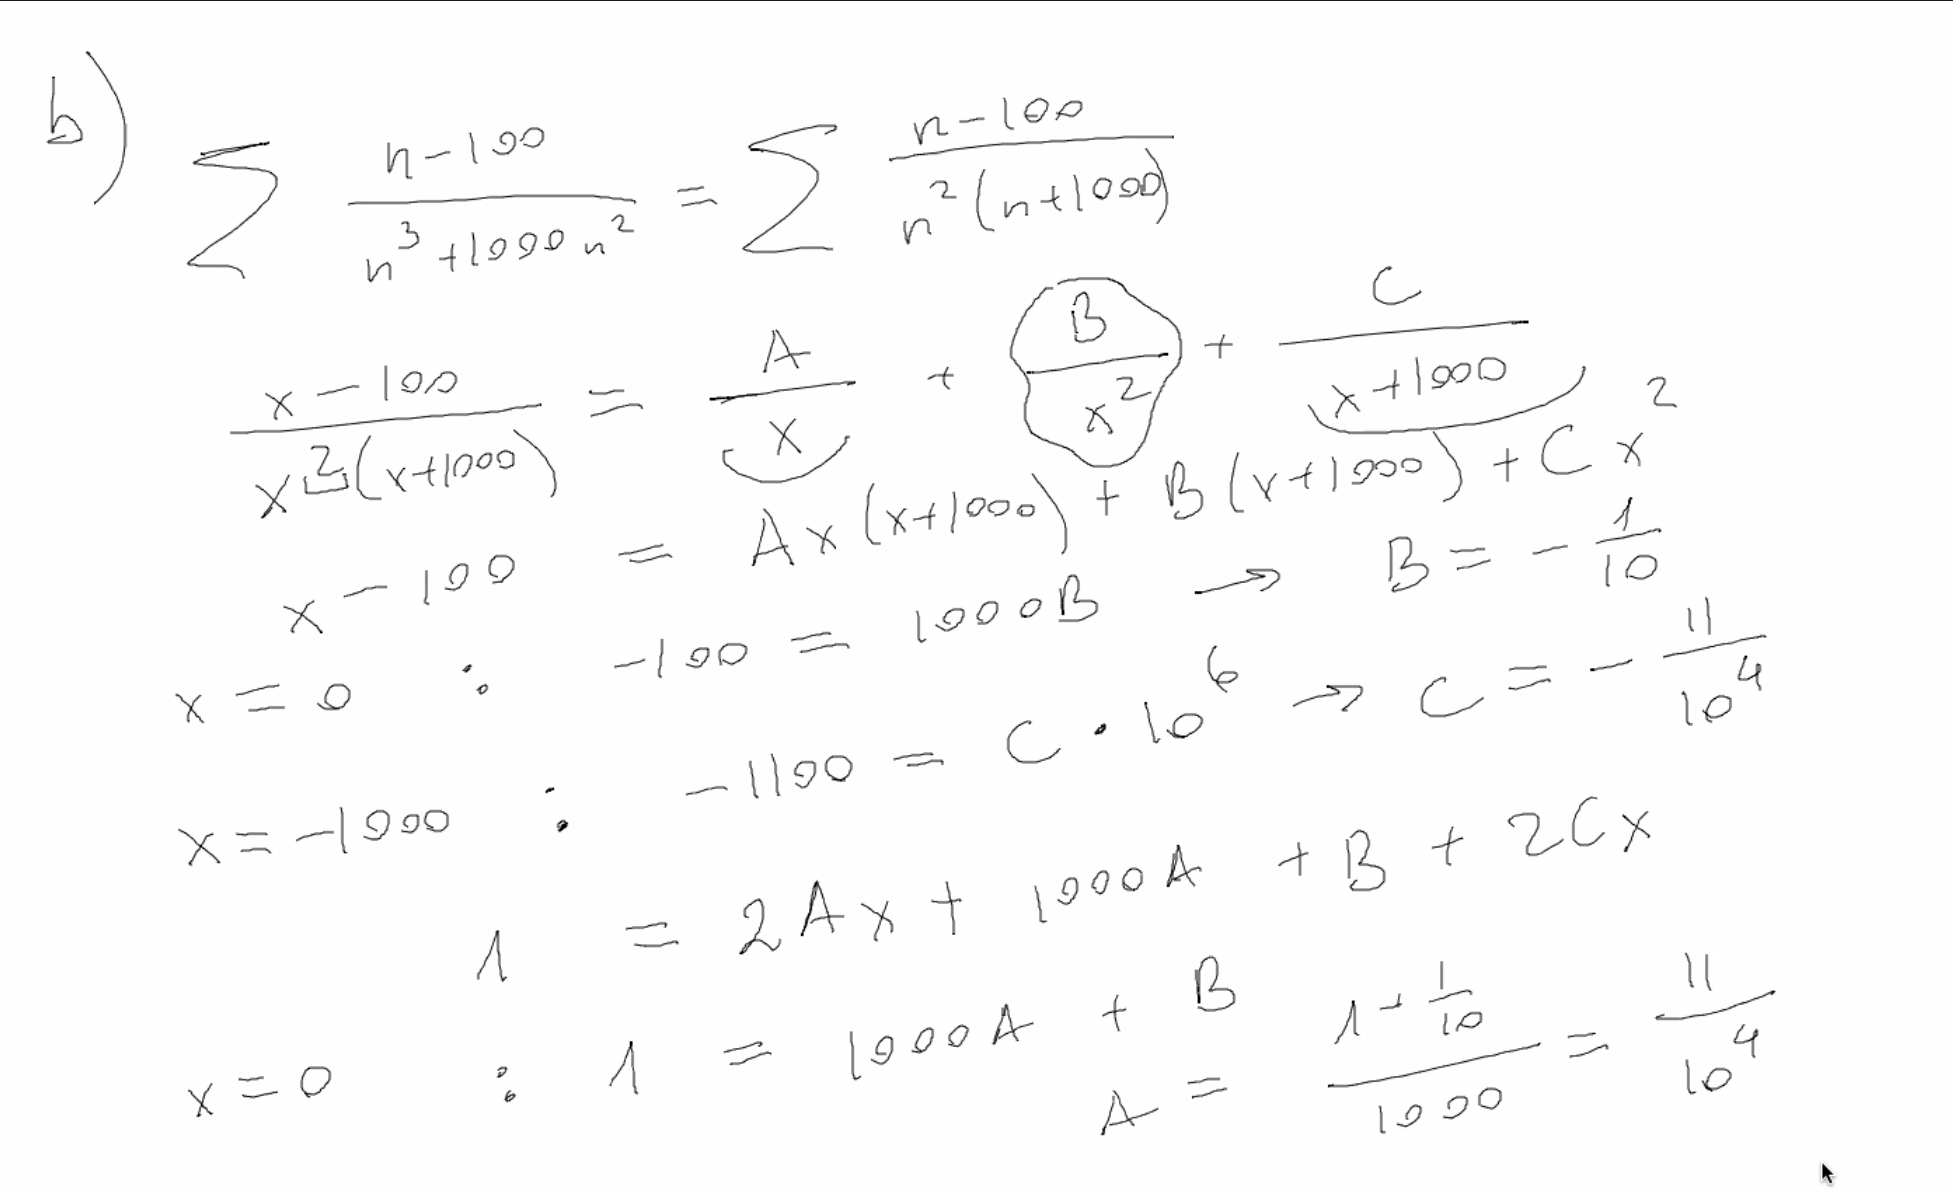 b)
∑ (n-100)/(n³+1000n²) = ∑ (n-100)/(n²(n+1000))
(x-100)/(x²(x+1000)) = A/x + B/x² + C/(x+1000)
x-100 = Ax(x+1000) + B(x+1000) + Cx²
x=0 : -100 = 1000B → B = -1/10
x=-1000 : -1100 = C·10⁶ → C = -11/10⁴
1 = 2Ax + 1000A + B + 2Cx
x=0 : 1 = 1000A + B
A = (1+1/10)/1000 = 11/10⁴